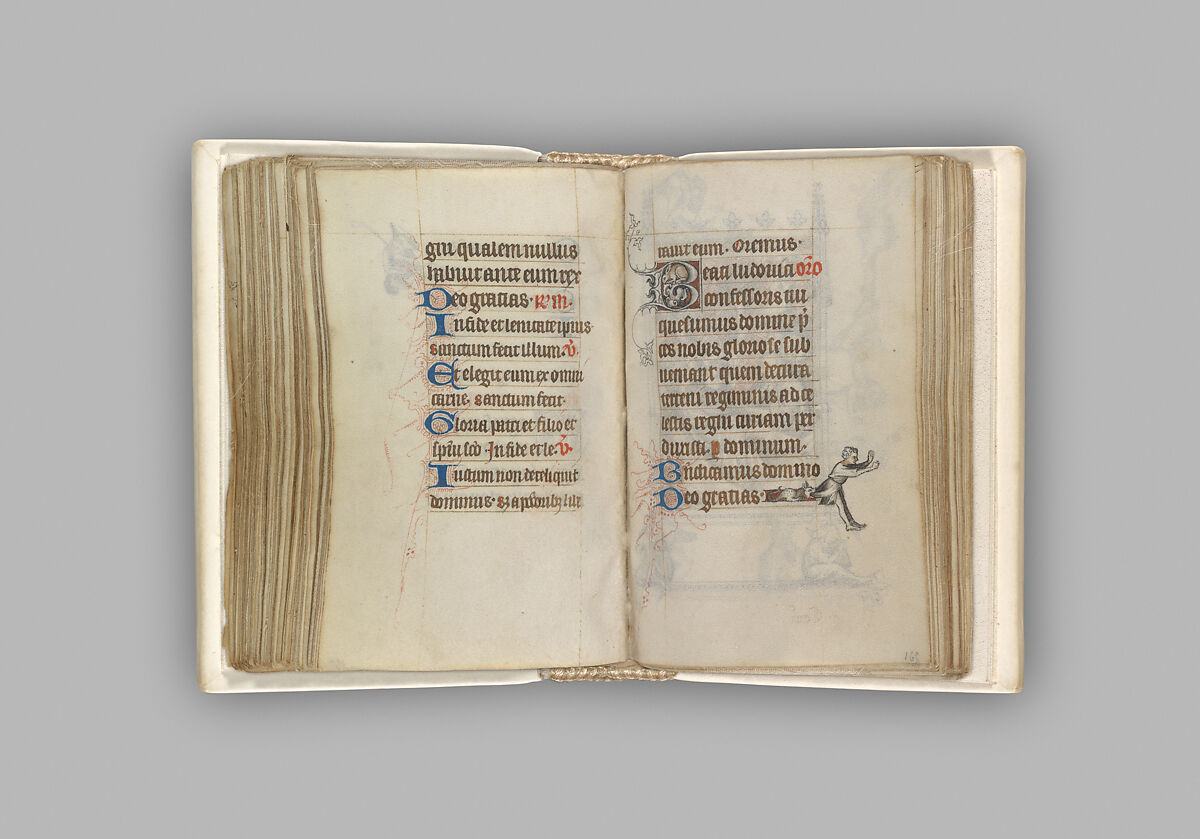 giu qualem nullus
habuit ante eum rex
Deo gratias. R̃m.
In fide et lenitate ipius
sanctum fecit illum. ℣.
Et elegit eum ex omni
carne. sanctum fecit.
Gloria patri et filio et
spũi sc̃o. In fide et le. ℣.
Iustum non dereliquit
dominus.
tauit eum. Oremus.
Beati ludovici or̃o
confessoris tui
quesumus domine p̃
ces nobis gloriose sub
ueniant quem de cura
terreni regiminis ad ce
lestis regni curiam per
duxisti. p dominum.
Bñdicamus domino
Deo gratias.
165